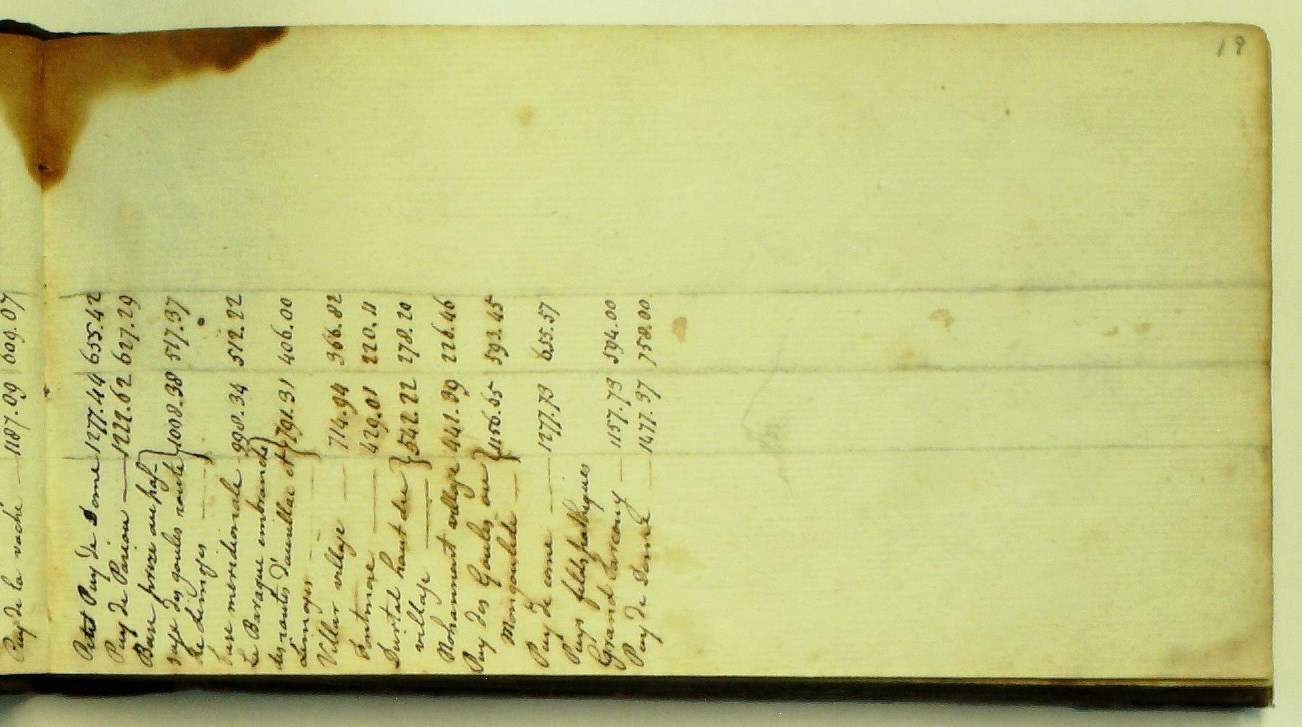 19
Puy de la vache — 1187.09 609.07
Petit Puy de Dome 1277.44 655.42
Puy de Pariou — 1222.62 627.29
Base prise au pas-
sage des goules route } 1008.38 517.37
de Limoges —
base meridionale 998.34 512.22
La Baraque embranch.
des routes d'aurillac et } 791.31 406.00
Limoges —
Villar village — 714.94 366.82
Fontmore — 429.01 220.11
Durtol haut du } 542.22 278.20
village —
Nohannent village 441.39 226.46
Puy des Goules ou } 1156.65 593.45
Mongoulède —
Puy de come — 1277.73 655.57
Puys feldspathiques
Grand Sarcouy — 1157.73 594.00
Puy de Dome — 1477.37 758.00